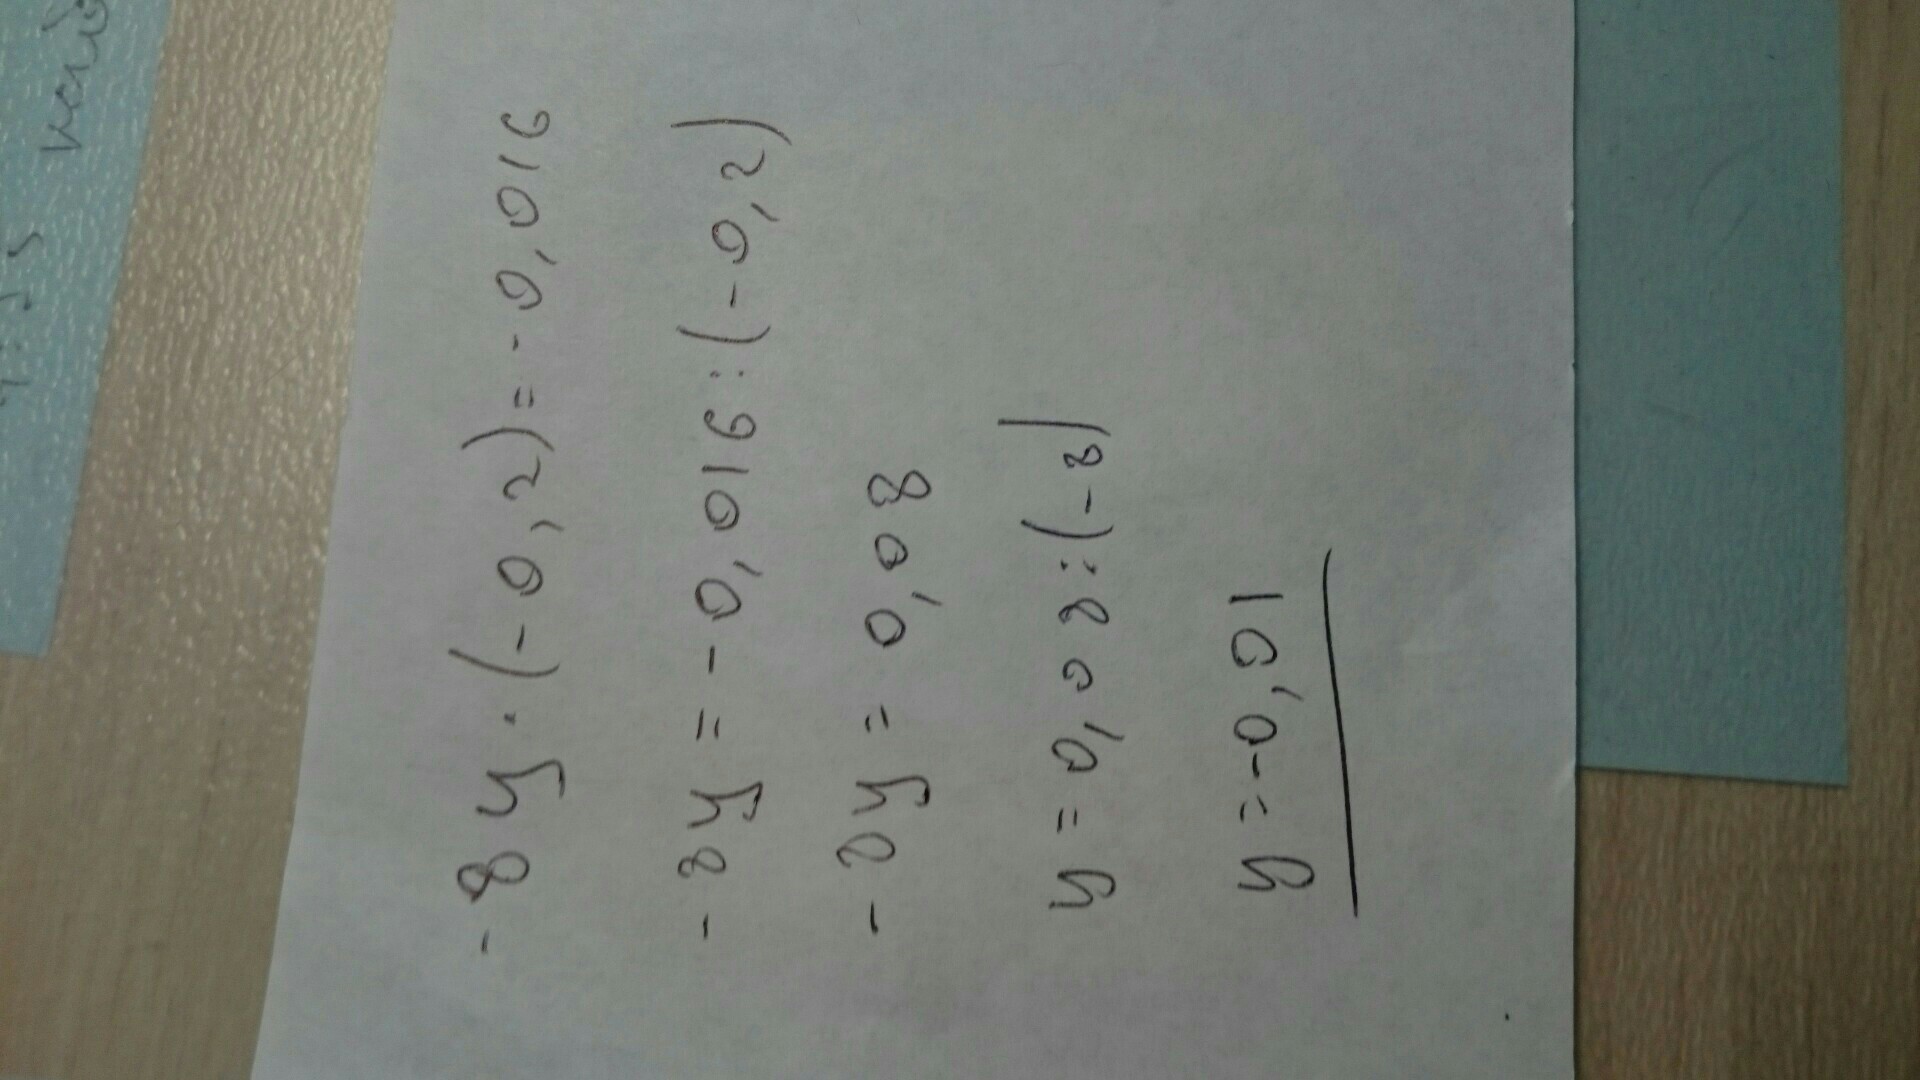 -8y·(-0,2)=-0,016
-8y=-0,016:(-0,2)
-8y=0,08
y=0,08:(-8)
y=-0,01